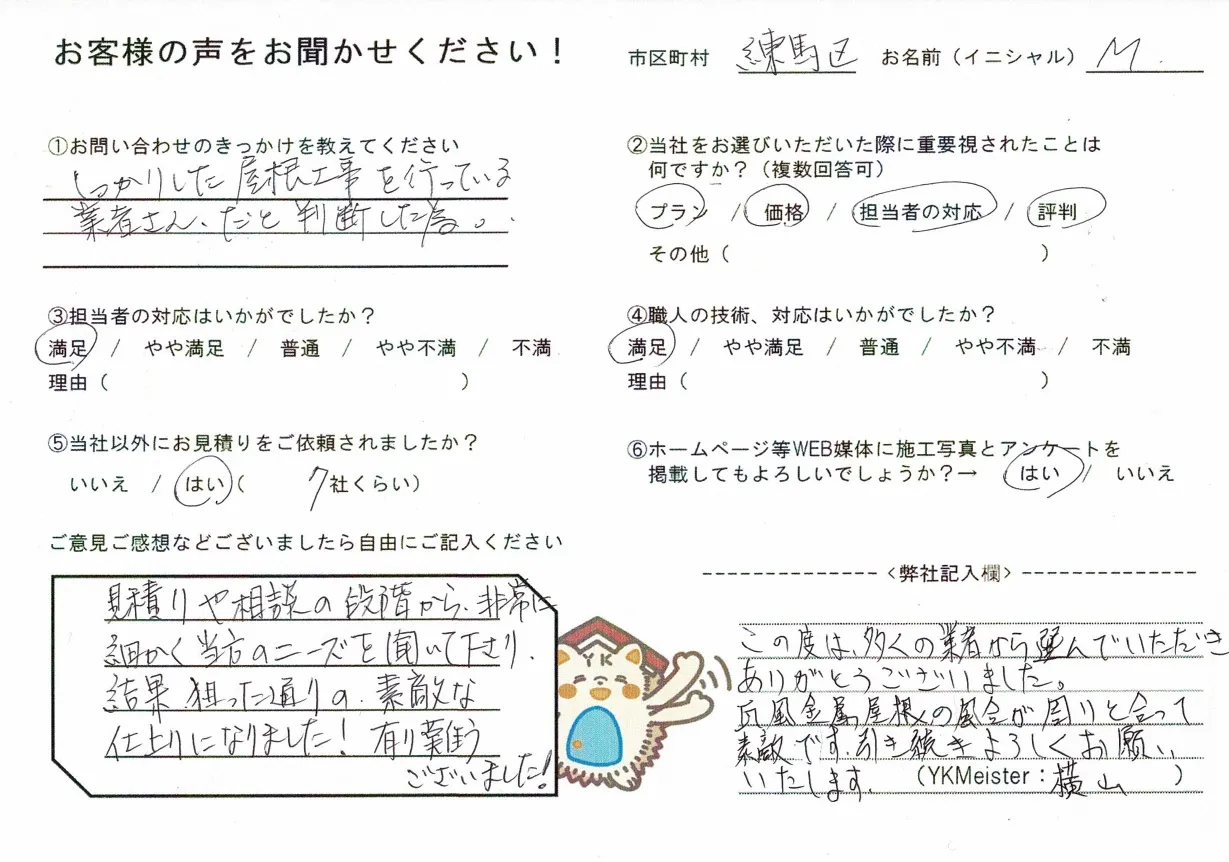 お客様の声をお聞かせください！
市区町村 練馬区 お名前（イニシャル） M.
①お問い合わせのきっかけを教えてください
しっかりした屋根工事を行っている
業者さん、だと判断した為。
②当社をお選びいただいた際に重要視されたことは
何ですか？（複数回答可）
プラン / 価格 / 担当者の対応 / 評判
その他（ ）
③担当者の対応はいかがでしたか？
満足 / やや満足 / 普通 / やや不満 / 不満
理由（ ）
④職人の技術、対応はいかがでしたか？
満足 / やや満足 / 普通 / やや不満 / 不満
理由（ ）
⑤当社以外にお見積りをご依頼されましたか？
いいえ / はい（ 7社くらい）
⑥ホームページ等WEB媒体に施工写真とアンケートを
掲載してもよろしいでしょうか？→ はい / いいえ
ご意見ご感想などございましたら自由にご記入ください
見積りや相談の段階から、非常に
細かく当方のニーズを聞いて下さり、
結果、狙った通りの、素敵な
仕上りになりました！有り難う
ございました！
YK
<弊社記入欄>
この度は、多くの業者から選んでいただき
ありがとうございました。
瓦風金属屋根の風合が周りと合って
素敵です。引き続きよろしくお願い
いたします。（YKMeister：横山 ）